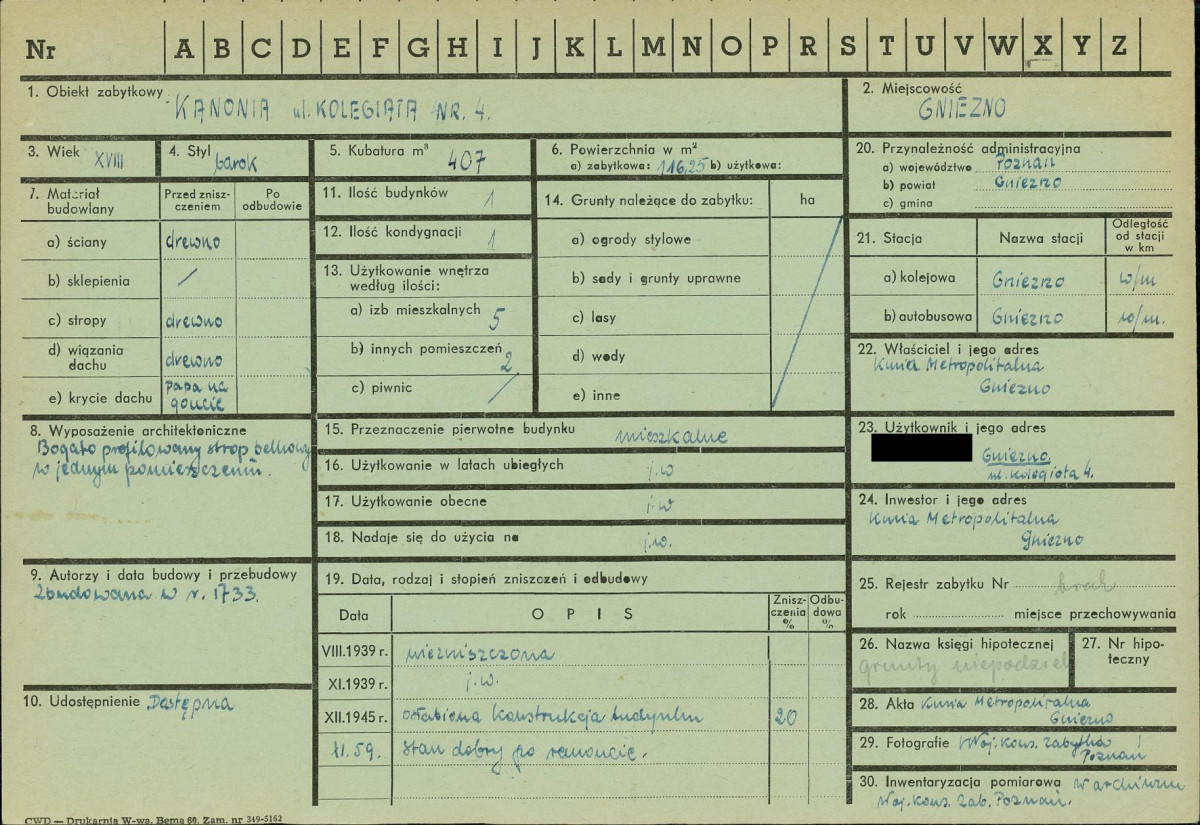 Nr A B C D E F G H I J K L M N O P R S T U V W X Y Z
1. Obiekt zabytkowy KANONIA ul. KOLEGIATA NR. 4.
2. Miejscowość
GNIEZNO
3. Wiek XVIII
4. Styl barok
5. Kubatura m³ 407
6. Powierzchnia w m²
a) zabytkowa: 116,25 b) użytkowa:
20. Przynależność administracyjna
a) województwo Poznań
b) powiat Gniezno
c) gmina
7. Materiał budowlany
Przed zniszczeniem
Po odbudowie
a) ściany drewno
b) sklepienia /
c) stropy drewno
d) wiązania dachu drewno
e) krycie dachu papa na goncie
11. Ilość budynków 1
12. Ilość kondygnacji 1
13. Użytkowanie wnętrza
według ilości:
a) izb mieszkalnych 5
b) innych pomieszczeń 2
c) piwnic /
14. Grunty należące do zabytku: ha
a) ogrody stylowe
b) sady i grunty uprawne
c) lasy
d) wody
e) inne
21. Stacja Nazwa stacji Odległość od stacji w km
a) kolejowa Gniezno w/m
b) autobusowa Gniezno w/m.
22. Właściciel i jego adres
Kuria Metropolitalna
Gniezno
8. Wyposażenie architektoniczne
Bogato profilowany strop belkowy
w jednym pomieszczeniu.
15. Przeznaczenie pierwotne budynku mieszkalne
16. Użytkowanie w latach ubiegłych j.w
17. Użytkowanie obecne j.w
18. Nadaje się do użycia na j.w.
23. Użytkownik i jego adres
Gniezno.
ul. Kolegiata 4.
24. Inwestor i jego adres
Kuria Metropolitalna
Gniezno
9. Autorzy i data budowy i przebudowy
Zbudowana w r. 1733.
19. Data, rodzaj i stopień zniszczeń i odbudowy
Data OPIS Zniszczenia % Odbudowa %
VIII.1939 r. niezniszczona
XI.1939 r. j.w.
XII.1945 r. osłabiona konstrukcja budynku 20
XI. 59. Stan dobry po remoncie.
25. Rejestr zabytku Nr brak
rok miejsce przechowywania
26. Nazwa księgi hipotecznej
grunty niepodziel
27. Nr hipoteczny
10. Udostępnienie Dostępna
28. Akta Kuria Metropolitalna
Gniezno
29. Fotografie Woj. Kons. Zabytków
Poznań
30. Inwentaryzacja pomiarowa w archiwum
Woj. Kons. Zab. Poznań.
CWD — Drukarnia W-wa, Bema 60. Zam. nr 349-5162